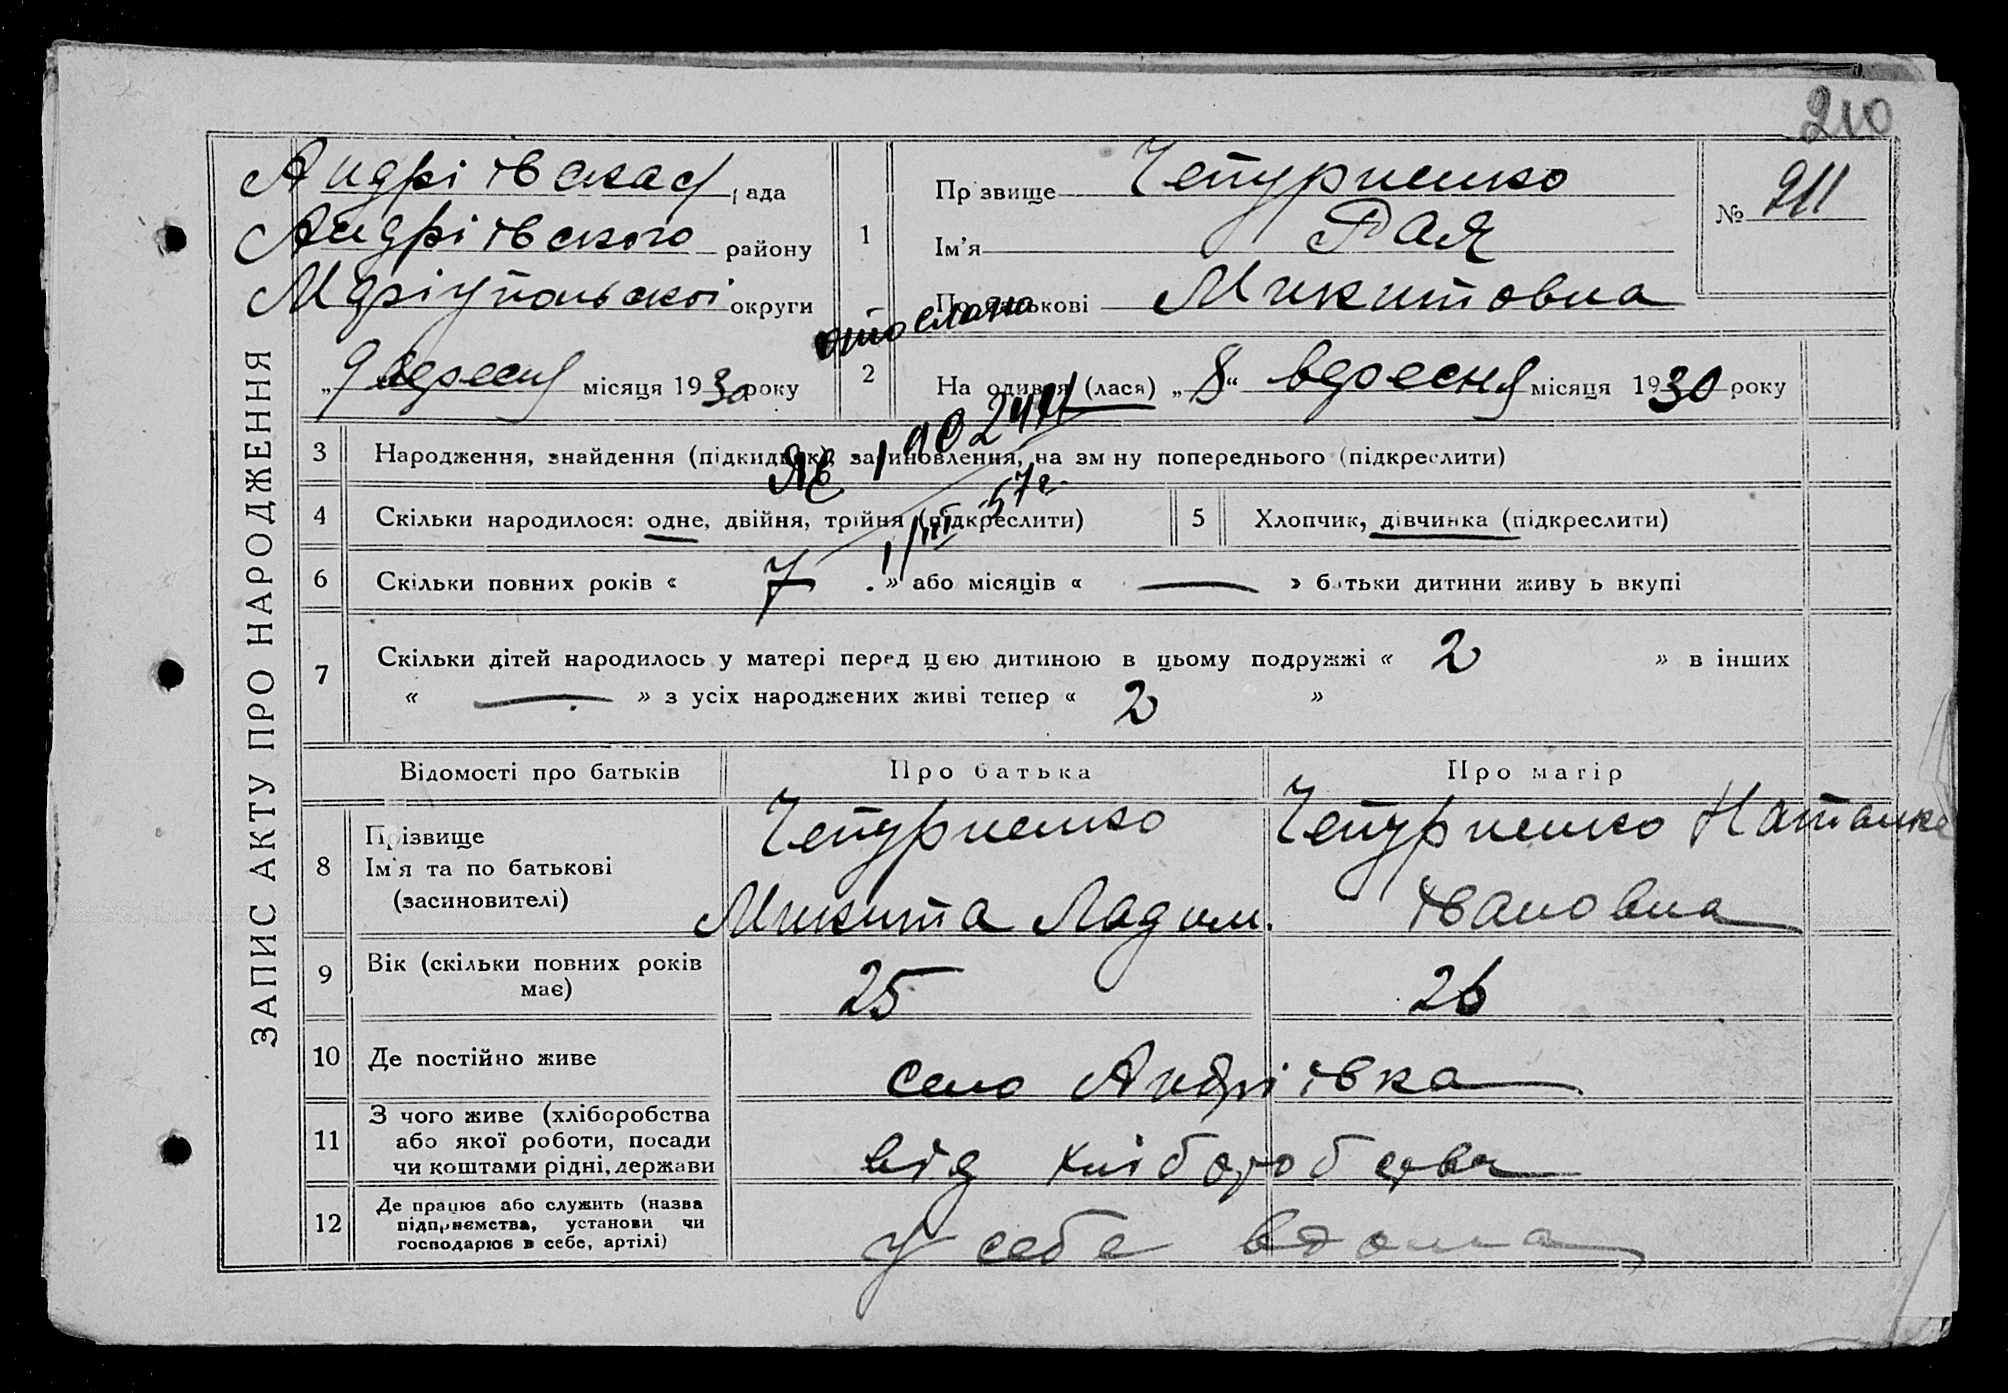 210
ЗАПИС АКТУ ПРО НАРОДЖЕННЯ
Андріївська рада
Андріївського району
Маріупольської округи
„9 вересня місяця 1930 року
1
Прізвище Чепурненко
Ім'я Рая
По батькові Микитовна
№ 211
отослано
2
На одився (лася) „8“ вересня місяця 1930 року
ЯЕ 1002411
1/III 57 г.
3 Народження, знайдення (підкидька), засиновлення, на зм ну попереднього (підкреслити)
4 Скільки народилося: одне, двійня, трійня (підкреслити)
5 Хлопчик, дівчинка (підкреслити)
6 Скільки повних років « 7 » або місяців « — » батьки дитини живу ь вкупі
7 Скільки дітей народилось у матері перед цією дитиною в цьому подружжі « 2 » в інших
« — » з усіх народжених живі тепер « 2 »
Відомості про батьків Про батька Про матір
8 Прізвище
Ім'я та по батькові
(засиновителі)
Чепурненко
Микита Ладим.
Чепурненко Наталка
Івановна
9 Вік (скільки повних років
має)
25 26
10 Де постійно живе
село Андріївка
11 З чого живе (хліборобства
або якої роботи, посади
чи коштами рідні, держави
від хліборобства
12 Де працює або служить (назва
підприємства, установи чи
господарює в себе, артілі)
у себе вдома